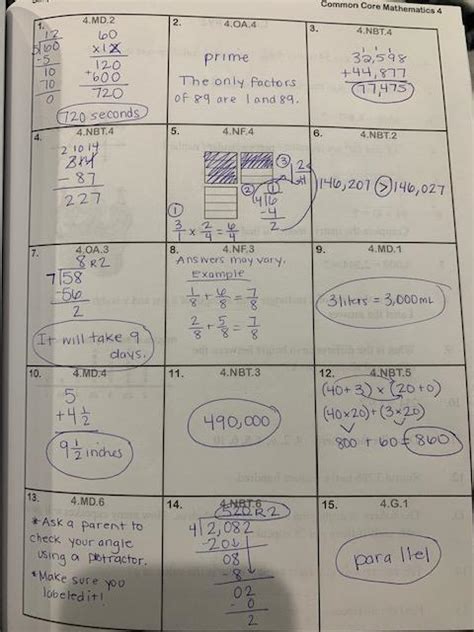 Common Core Mathematics 4
1. 4.MD.2
12
5)60
-5
10
-10
0
60
x12
120
+600
720
720 seconds
2. 4.OA.4
prime
The only factors
of 89 are 1 and 89.
3. 4.NBT.4
32,598
+44,877
77,475
4. 4.NBT.4
2 10 14
314
- 87
227
5. 4.NF.4
①
3/1 x 2/4 = 6/4
②
4)6
-4
2
③
1 2/4
6. 4.NBT.2
146,207 > 146,027
7. 4.OA.3
8 R2
7)58
-56
2
It will take 9
days.
8. 4.NF.3
Answers may vary.
Example
1/8 + 6/8 = 7/8
2/8 + 5/8 = 7/8
9. 4.MD.1
3 liters = 3,000 mL
10. 4.MD.4
5
+4 1/2
9 1/2 inches
11. 4.NBT.3
490,000
12. 4.NBT.5
(40+3) x (20+0)
(40x20)+(3x20)
800 + 60 = 860
13. 4.MD.6
*Ask a parent to
check your angle
using a protractor.
*Make sure you
labeled it!
14. 4.NBT.6
520 R2
4)2,082
-20
08
-8
02
-0
2
15. 4.G.1
parallel